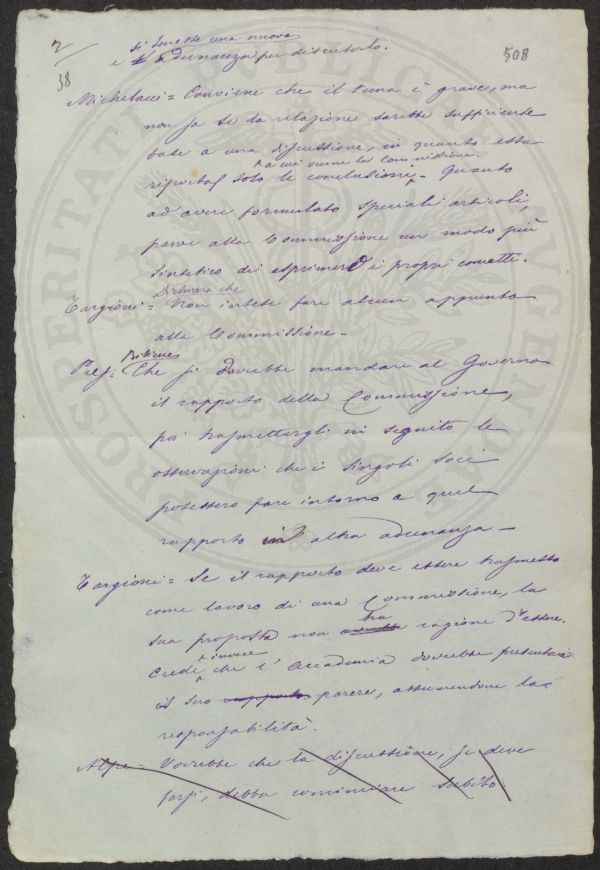 2
38
508
si tenesse una nuova
e adunanza per discuterlo.
Michelacci = Conviene che il tema è grave, ma
non sa se la relazione sarebbe sufficiente
base a una discussione, in quanto essa
a cui venne la Commissione.
riporta solo le conclusioni - Quanto
ad avere formulato speciali articoli,
parve alla Commissione un modo più
sintetico di esprimere i propri concetti.
Dichiara che
Targioni = Non intese fare alcun appunto
alla Commissione -
Ritiene
Pres. = Che si dovrebbe mandare al Governo
il rapporto della Commissione,
poi trasmettergli in seguito le
osservazioni che i singoli soci
potessero fare intorno a quel
rapporto in altra adunanza -
Targioni = Se il rapporto deve essere trasmesso
come lavoro di una Commissione, la
ha
sua proposta non ragione d'essere.
invece
Crede che l'Accademia dovrebbe presentare
il suo rapporto parere, assumendone la
responsabilità.
Alpe - Vorrebbe che la discussione, se deve
farsi, debba cominciare subito.
PROSPERITATI PUBLICAE AUGENDAE